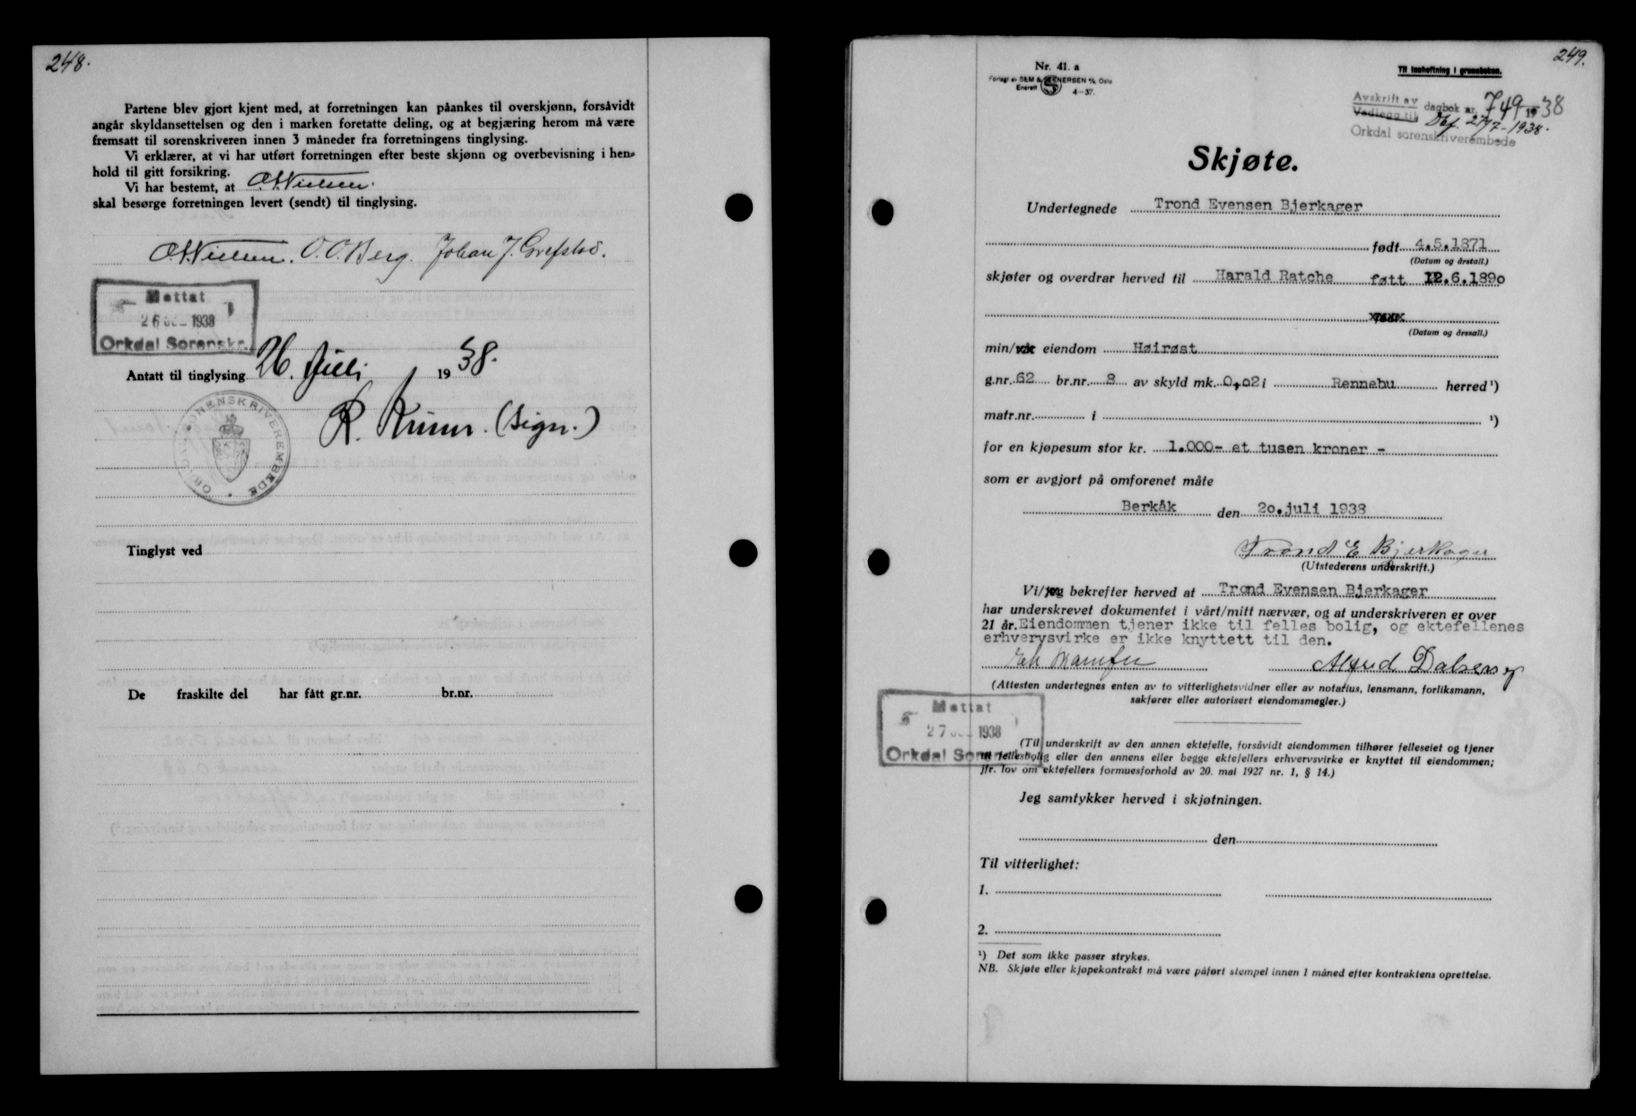 248.
Partene blev gjort kjent med, at forretningen kan påankes til overskjønn, forsåvidt
angår skyldansettelsen og den i marken foretatte deling, og at begjæring herom må være
fremsatt til sorenskriveren innen 3 måneder fra forretningens tinglysing.
Vi erklærer, at vi har utført forretningen efter beste skjønn og overbevisning i hen-
hold til gitt forsikring.
Vi har bestemt, at
skal besørge forretningen levert (sendt) til tinglysing.
O. O. Berg. Johan J. Grefstad.
Mottat
26 1938
Orkdal Sorenskr.
Antatt til tinglysing 26. Juli 1938.
(sign.)
SORENSKRIVEREMBEDE
Tinglyst ved
De fraskilte del har fått gr.nr. br.nr.
249.
Nr. 41. a
Forlagt av SEM & STENERSEN A/S Oslo
Enerett 4-37.
Til innheftning i grunnboken.
Avskrift av
Vedlegg til dagbok nr. 749 1938
Dbf. 27/7-1938.
Orkdal sorenskriverembede
Skjøte.
Undertegnede Trond Evensen Bjerkager
født 4.5.1871
(Datum og årstall.)
skjøter og overdrar herved til Harald Ratche føtt 12.6.1890
(Datum og årstall.)
min/ eiendom Høirøst
g.nr. 62 br.nr. 8 av skyld mk. 0,02 i Rennebu herred ¹)
matr.nr. i ¹)
for en kjøpesum stor kr. 1.000- et tusen kroner -
som er avgjort på omforenet måte
Berkåk den 20.juli 1938
Trond E Bjerkager
(Utstederens underskrift.)
Vi/jeg bekrefter herved at Trond Evensen Bjerkager
har underskrevet dokumentet i vårt/mitt nærvær, og at underskriveren er over
21 år. Eiendommen tjener ikke til felles bolig, og ektefellenes
erhvervsvirke er ikke knyttett til den.
Alfred
(Attesten undertegnes enten av to vitterlighetsvidner eller av notarius, lensmann, forliksmann,
sakfører eller autorisert eiendomsmegler.)
Mottat
27 1938
Orkdal Sorenskr.
(Til underskrift av den annen ektefelle, forsåvidt eiendommen tilhører felleseiet og tjener
til fellesbolig eller den annens eller begge ektefellers erhvervsvirke er knyttet til eiendommen;
jfr. lov om ektefellers formuesforhold av 20. mai 1927 nr. 1, § 14.)
Jeg samtykker herved i skjøtningen.
den
Til vitterlighet:
1.
2.
¹) Det som ikke passer strykes.
NB. Skjøte eller kjøpekontrakt må være påført stempel innen 1 måned efter kontraktens oprettelse.